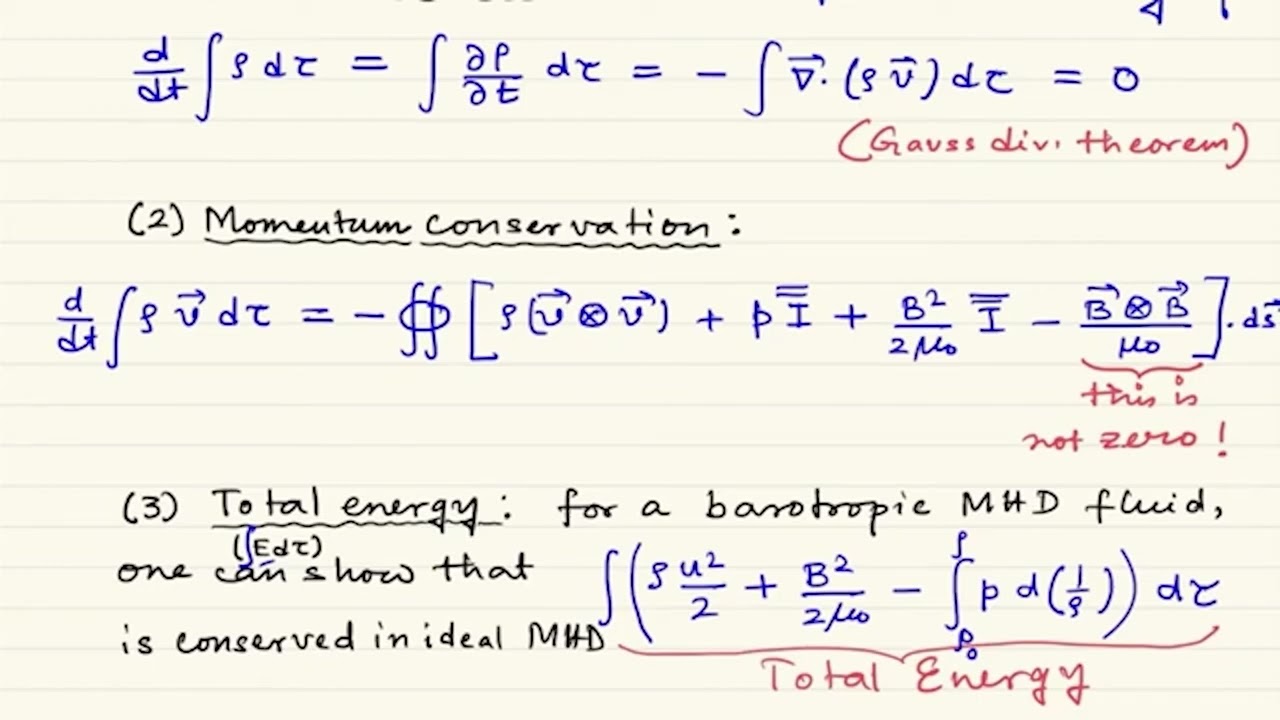 d/dt ∫ ρ dτ = ∫ ∂ρ/∂t dτ = − ∫ ∇⃗·(ρ v⃗) dτ = 0
(Gauss div. theorem)
(2) Momentum conservation:
d/dt ∫ ρ v⃗ dτ = − ∯ [ρ(v⃗ ⊗ v⃗) + p I̿ + B²/2μ₀ I̿ − B⃗ ⊗ B⃗/μ₀]. ds⃗
this is
not zero!
(3) Total energy: for a barotropic MHD fluid,
(∫E dτ)
one can show that ∫(ρ u²/2 + B²/2μ₀ − ∫_ρ₀^ρ p d(1/ρ)) dτ
is conserved in ideal MHD
Total Energy